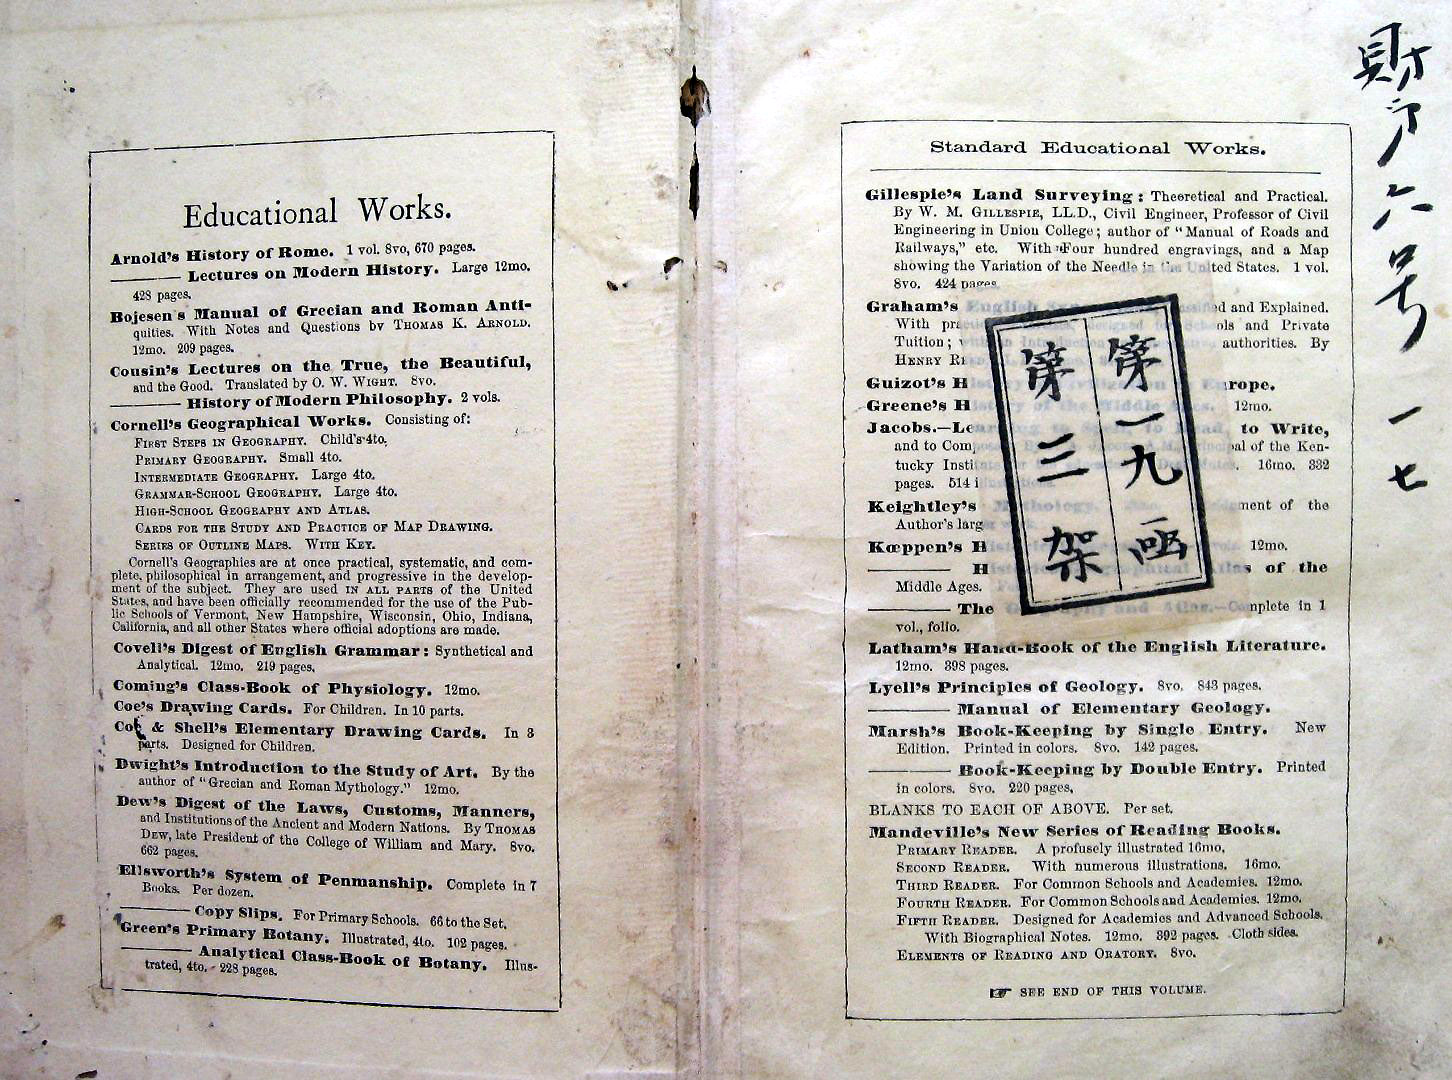 Educational Works.
Arnold's History of Rome. 1 vol. 8vo, 670 pages.
——— Lectures on Modern History. Large 12mo.
428 pages.
Bojesen's Manual of Grecian and Roman Anti-
quities. With Notes and Questions by THOMAS K. ARNOLD.
12mo. 209 pages.
Cousin's Lectures on the True, the Beautiful,
and the Good. Translated by O. W. WIGHT. 8vo.
——— History of Modern Philosophy. 2 vols.
Cornell's Geographical Works. Consisting of:
FIRST STEPS IN GEOGRAPHY. Child's 4to.
PRIMARY GEOGRAPHY. Small 4to.
INTERMEDIATE GEOGRAPHY. Large 4to.
GRAMMAR-SCHOOL GEOGRAPHY. Large 4to.
HIGH-SCHOOL GEOGRAPHY AND ATLAS.
CARDS FOR THE STUDY AND PRACTICE OF MAP DRAWING.
SERIES OF OUTLINE MAPS. WITH KEY.
Cornell's Geographies are at once practical, systematic, and com-
plete, philosophical in arrangement, and progressive in the develop-
ment of the subject. They are used IN ALL PARTS of the United
States, and have been officially recommended for the use of the Pub-
lic Schools of Vermont, New Hampshire, Wisconsin, Ohio, Indiana,
California, and all other States where official adoptions are made.
Covell's Digest of English Grammar: Synthetical and
Analytical. 12mo. 219 pages.
Coming's Class-Book of Physiology. 12mo.
Coe's Drawing Cards. For Children. In 10 parts.
Coe & Shell's Elementary Drawing Cards. In 3
parts. Designed for Children.
Dwight's Introduction to the Study of Art. By the
author of "Grecian and Roman Mythology." 12mo.
Dew's Digest of the Laws, Customs, Manners,
and Institutions of the Ancient and Modern Nations. By THOMAS
DEW, late President of the College of William and Mary. 8vo.
662 pages.
Ellsworth's System of Penmanship. Complete in 7
Books. Per dozen.
——— Copy Slips. For Primary Schools. 66 to the Set.
Green's Primary Botany. Illustrated, 4to. 102 pages.
——— Analytical Class-Book of Botany. Illus-
trated, 4to. 228 pages.
Standard Educational Works.
Gillespie's Land Surveying: Theoretical and Practical.
By W. M. GILLESPIE, LL.D., Civil Engineer, Professor of Civil
Engineering in Union College; author of "Manual of Roads and
Railways," etc. With Four hundred engravings, and a Map
showing the Variation of the Needle in the United States. 1 vol.
8vo. 424 pages.
Graham's English and Explained.
With and Private
Tuition; authorities. By
HENRY
Guizot's History of Civilization in Europe.
Greene's History of the Middle Ages. 12mo.
Jacobs.—Learning to Spell, to Read, to Write,
and to Compose. of the Ken-
tucky 16mo. 332
pages. 514
Keightley's Mythology. of the
Author's larger work.
Kœppen's 12mo.
——— Atlas of the
Middle Ages.
——— The Geography and Atlas.—Complete in 1
vol., folio.
Latham's Hand-Book of the English Literature.
12mo. 398 pages.
Lyell's Principles of Geology. 8vo. 843 pages.
——— Manual of Elementary Geology.
Marsh's Book-Keeping by Single Entry. New
Edition. Printed in colors. 8vo. 142 pages.
——— Book-Keeping by Double Entry. Printed
in colors. 8vo. 220 pages.
BLANKS TO EACH OF ABOVE. Per set.
Mandeville's New Series of Reading Books.
PRIMARY READER. A profusely illustrated 16mo.
SECOND READER. With numerous illustrations. 16mo.
THIRD READER. For Common Schools and Academies. 12mo.
FOURTH READER. For Common Schools and Academies. 12mo.
FIFTH READER. Designed for Academies and Advanced Schools.
With Biographical Notes. 12mo. 392 pages. Cloth sides.
ELEMENTS OF READING AND ORATORY. 8vo.
☞ SEE END OF THIS VOLUME.
第一九函
第三架
財 六号 一七